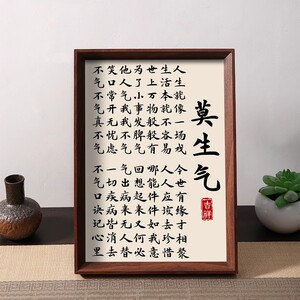 莫生气
吉祥
人生就像一场戏
今世有缘才相聚
生活本就不容易
人人应该去珍惜
世上万物般般有
哪能件件如我意
为了小事发脾气
回想起来又何必
他人气我我不气
气出病来无人替
笑口常开无忧虑
一切疾病皆消去
不气不气真不气
不气口诀记心里